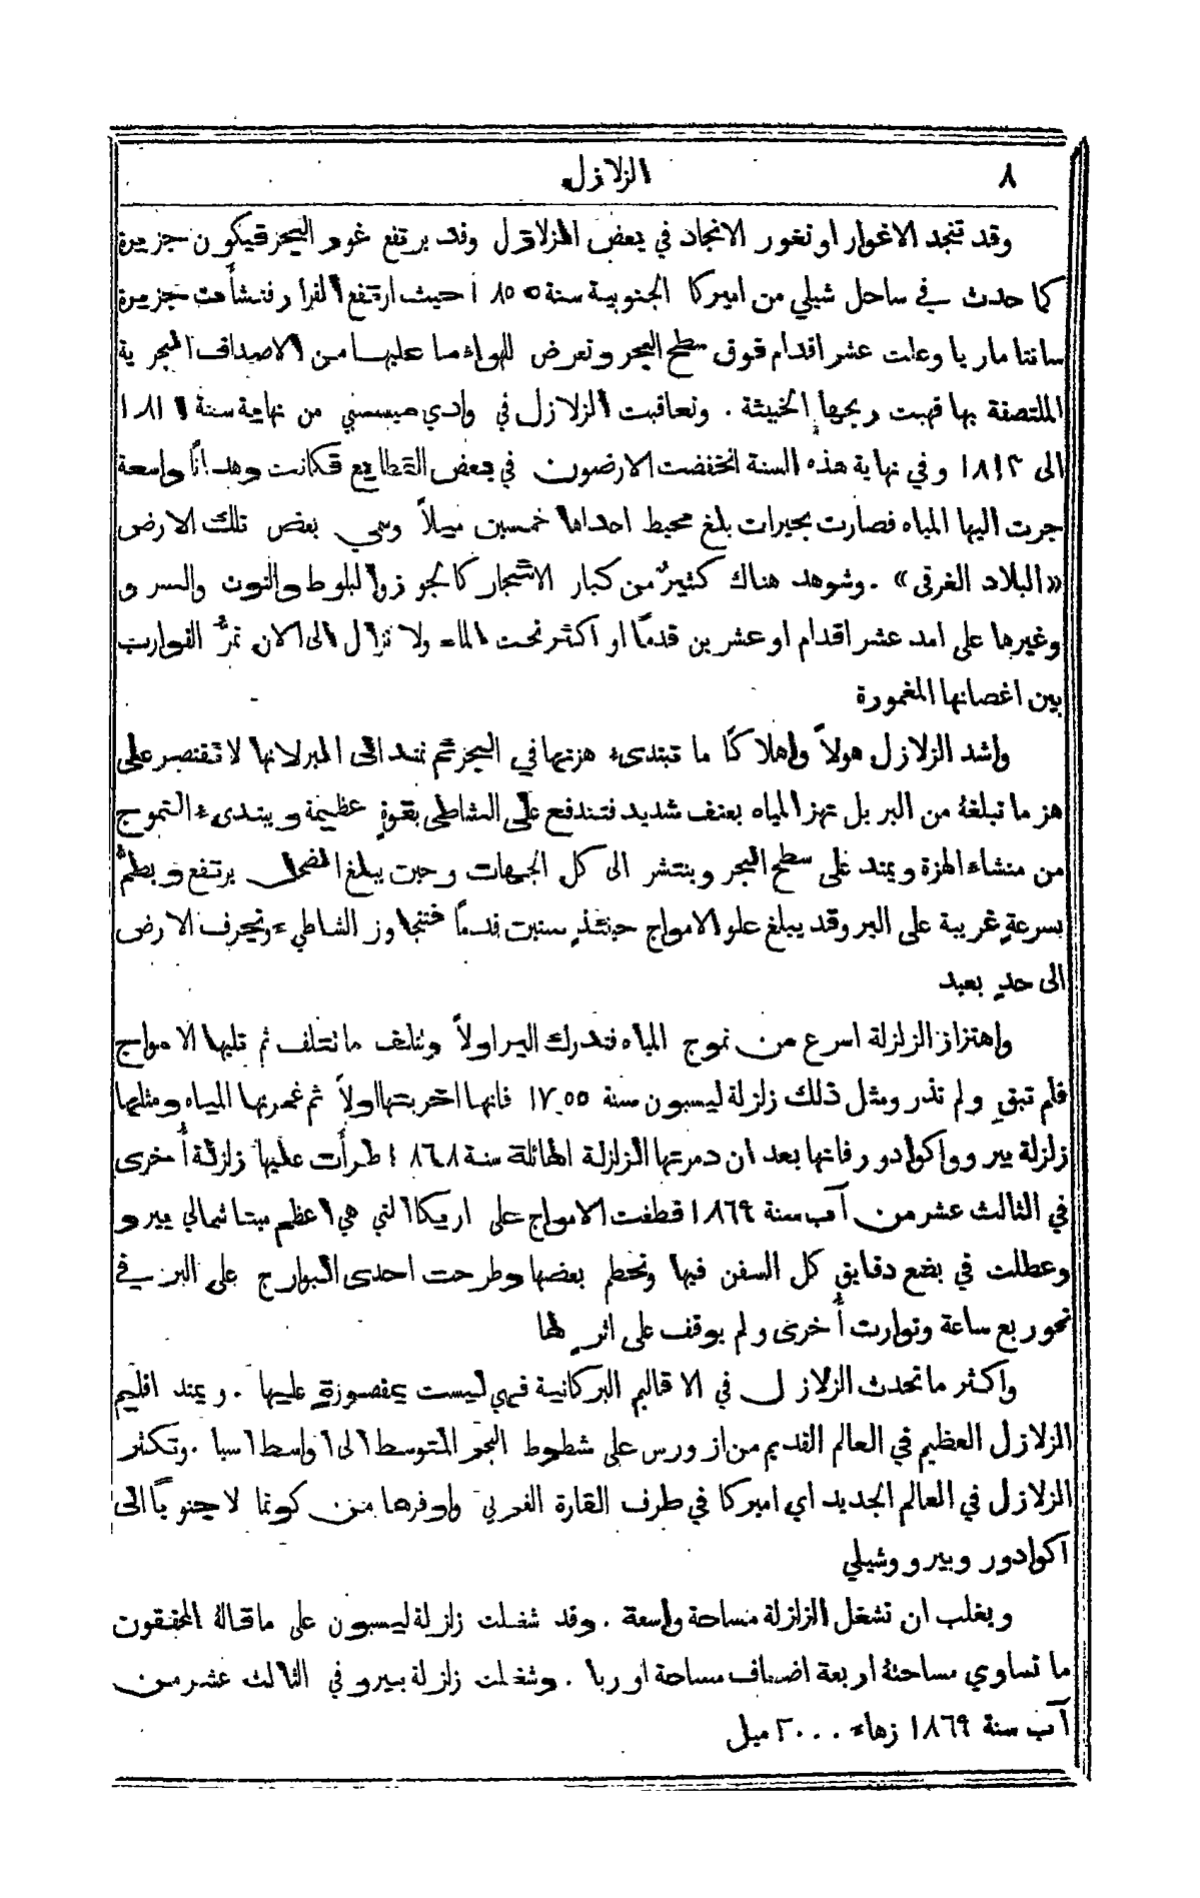 ٨ الزلازل
وقد تنجد الاغوار او تغور الانجاد في بعض الزلازل وقد يرتفع غور البحر فيكون جزيرة
كما حدث في ساحل شيلي من اميركا الجنوبية سنة ١٨٥٥ حيث ارتفع القرار فنشأت جزيرة
سانتا ماريا وعلت عشر اقدام فوق سطح البحر وتعرض للهواء ما عليها من الاصداف البحرية
الملتصقة بها فهبت ريحها الخبيثة . وتعاقبت الزلازل في وادي ميسسبي من نهاية سنة ١٨١١
الى ١٨١٢ وفي نهاية هذه السنة انخفضت الارضون في بعض القطايع فكانت وهدانًا واسعة
جرت اليها المياه فصارت بحيرات بلغ محيط احداها خمسين ميلاً وسمي بعض تلك الارض
«البلاد الغرقى» . وشوهد هناك كثيرٌ من كبار الاشجار كالجوز والبلوط والتوت والسرو
وغيرها على امد عشر اقدام او عشرين قدمًا او اكثر تحت الماء ولا تزال الى الان تمرُّ القوارب
بين اغصانها المغمورة
واشد الزلازل هولاً واهلاكًا ما تبتدىء هزتها في البحر ثم تمتد الى البر لانها لا تقتصر على
هز ما تبلغهُ من البر بل تهز المياه بعنف شديد فتندفع على الشاطى بقوةٍ عظيمة ويبتدىء التموج
من منشاء الهزة ويمتد على سطح البحر وينتشر الى كل الجهات وحين يبلغ الضحل يرتفع ويطمُّ
بسرعةٍ غريبة على البر وقد يبلغ علو الامواج حينئذٍ ستين قدمًا فتتجاوز الشاطيء وتجرف الارض
الى حدٍ بعيد
واهتزاز الزلزلة اسرع من تموج المياه فتدرك البر اولاً وتتلف ما تتلف ثم تليها الامواج
فلم تبقِ ولم تذر ومثل ذلك زلزلة ليسبون سنة ١٧٥٥ فانها اخربتها اولاً ثم غمرتها المياه ومثلها
زلزلة بيرو واكوادور فانها بعد ان دمرتها الزلزلة الهائلة سنة ١٨٦٨ طرأت عليها زلزلة أخرى
في الثالث عشر من آب سنة ١٨٦٩ فطفت الامواج على اريكا التي هي اعظم مينا شمالي بيرو
وعطلت في بضع دقايق كل السفن فيها وتحطم بعضها وطرحت احدى البوارج على البر في
نحو ربع ساعة وتوارت أُخرى ولم يوقف على اثرٍ لها
واكثر ما تحدث الزلازل في الاقاليم البركانية فهي ليست بمقصورةٍ عليها . ويمتد اقليم
الزلازل العظيم في العالم القديم من ازورس على شطوط البحر المتوسط الى اواسط اسيا . وتكثر
الزلازل في العالم الجديد اي اميركا في طرف القارة الغربي واوفرها من كوتما لا جنوبًا الى
اكوادور وبيرو وشيلي
ويغلب ان تشغل الزلزلة مساحة واسعة . وقد شغلت زلزلة ليسبون على ما قالهُ المحققون
ما تساوي مساحتهُ اربعة اضعاف مساحة اوربا . وشغلت زلزلة بيرو في الثالث عشر من
آب سنة ١٨٦٩ زهاء ٢٠٠٠ ميل